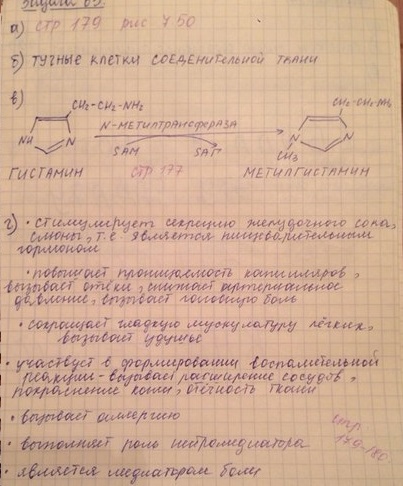 Задача 65.
а) стр 179 рис 750
б) тучные клетки соеденительной ткани
в)
CH₂-CH₂-NH₂
CH₂-CH₂-NH₂
N-метилтрансфераза
NH
N
N
N
CH₃
SAM
SAГ
гистамин
стр 177
метилгистамин
г) • стимулирует секрецию желудочного сока,
слюны, т.е является пищеварительным
гормоном
• повышает проницаемость капилляров,
вызывает отёки, снижает артериальное
давление, вызывает головную боль
• сокращает гладкую мускулатуру лёгких,
вызывает удушье
• участвует в формировании воспалительной
реакции - вызывает расширение сосудов,
покраснение кожи, отёчность ткани
• вызывает аллергию
• выполняет роль нейромедиатора
• является медиатором боли
стр
179-180